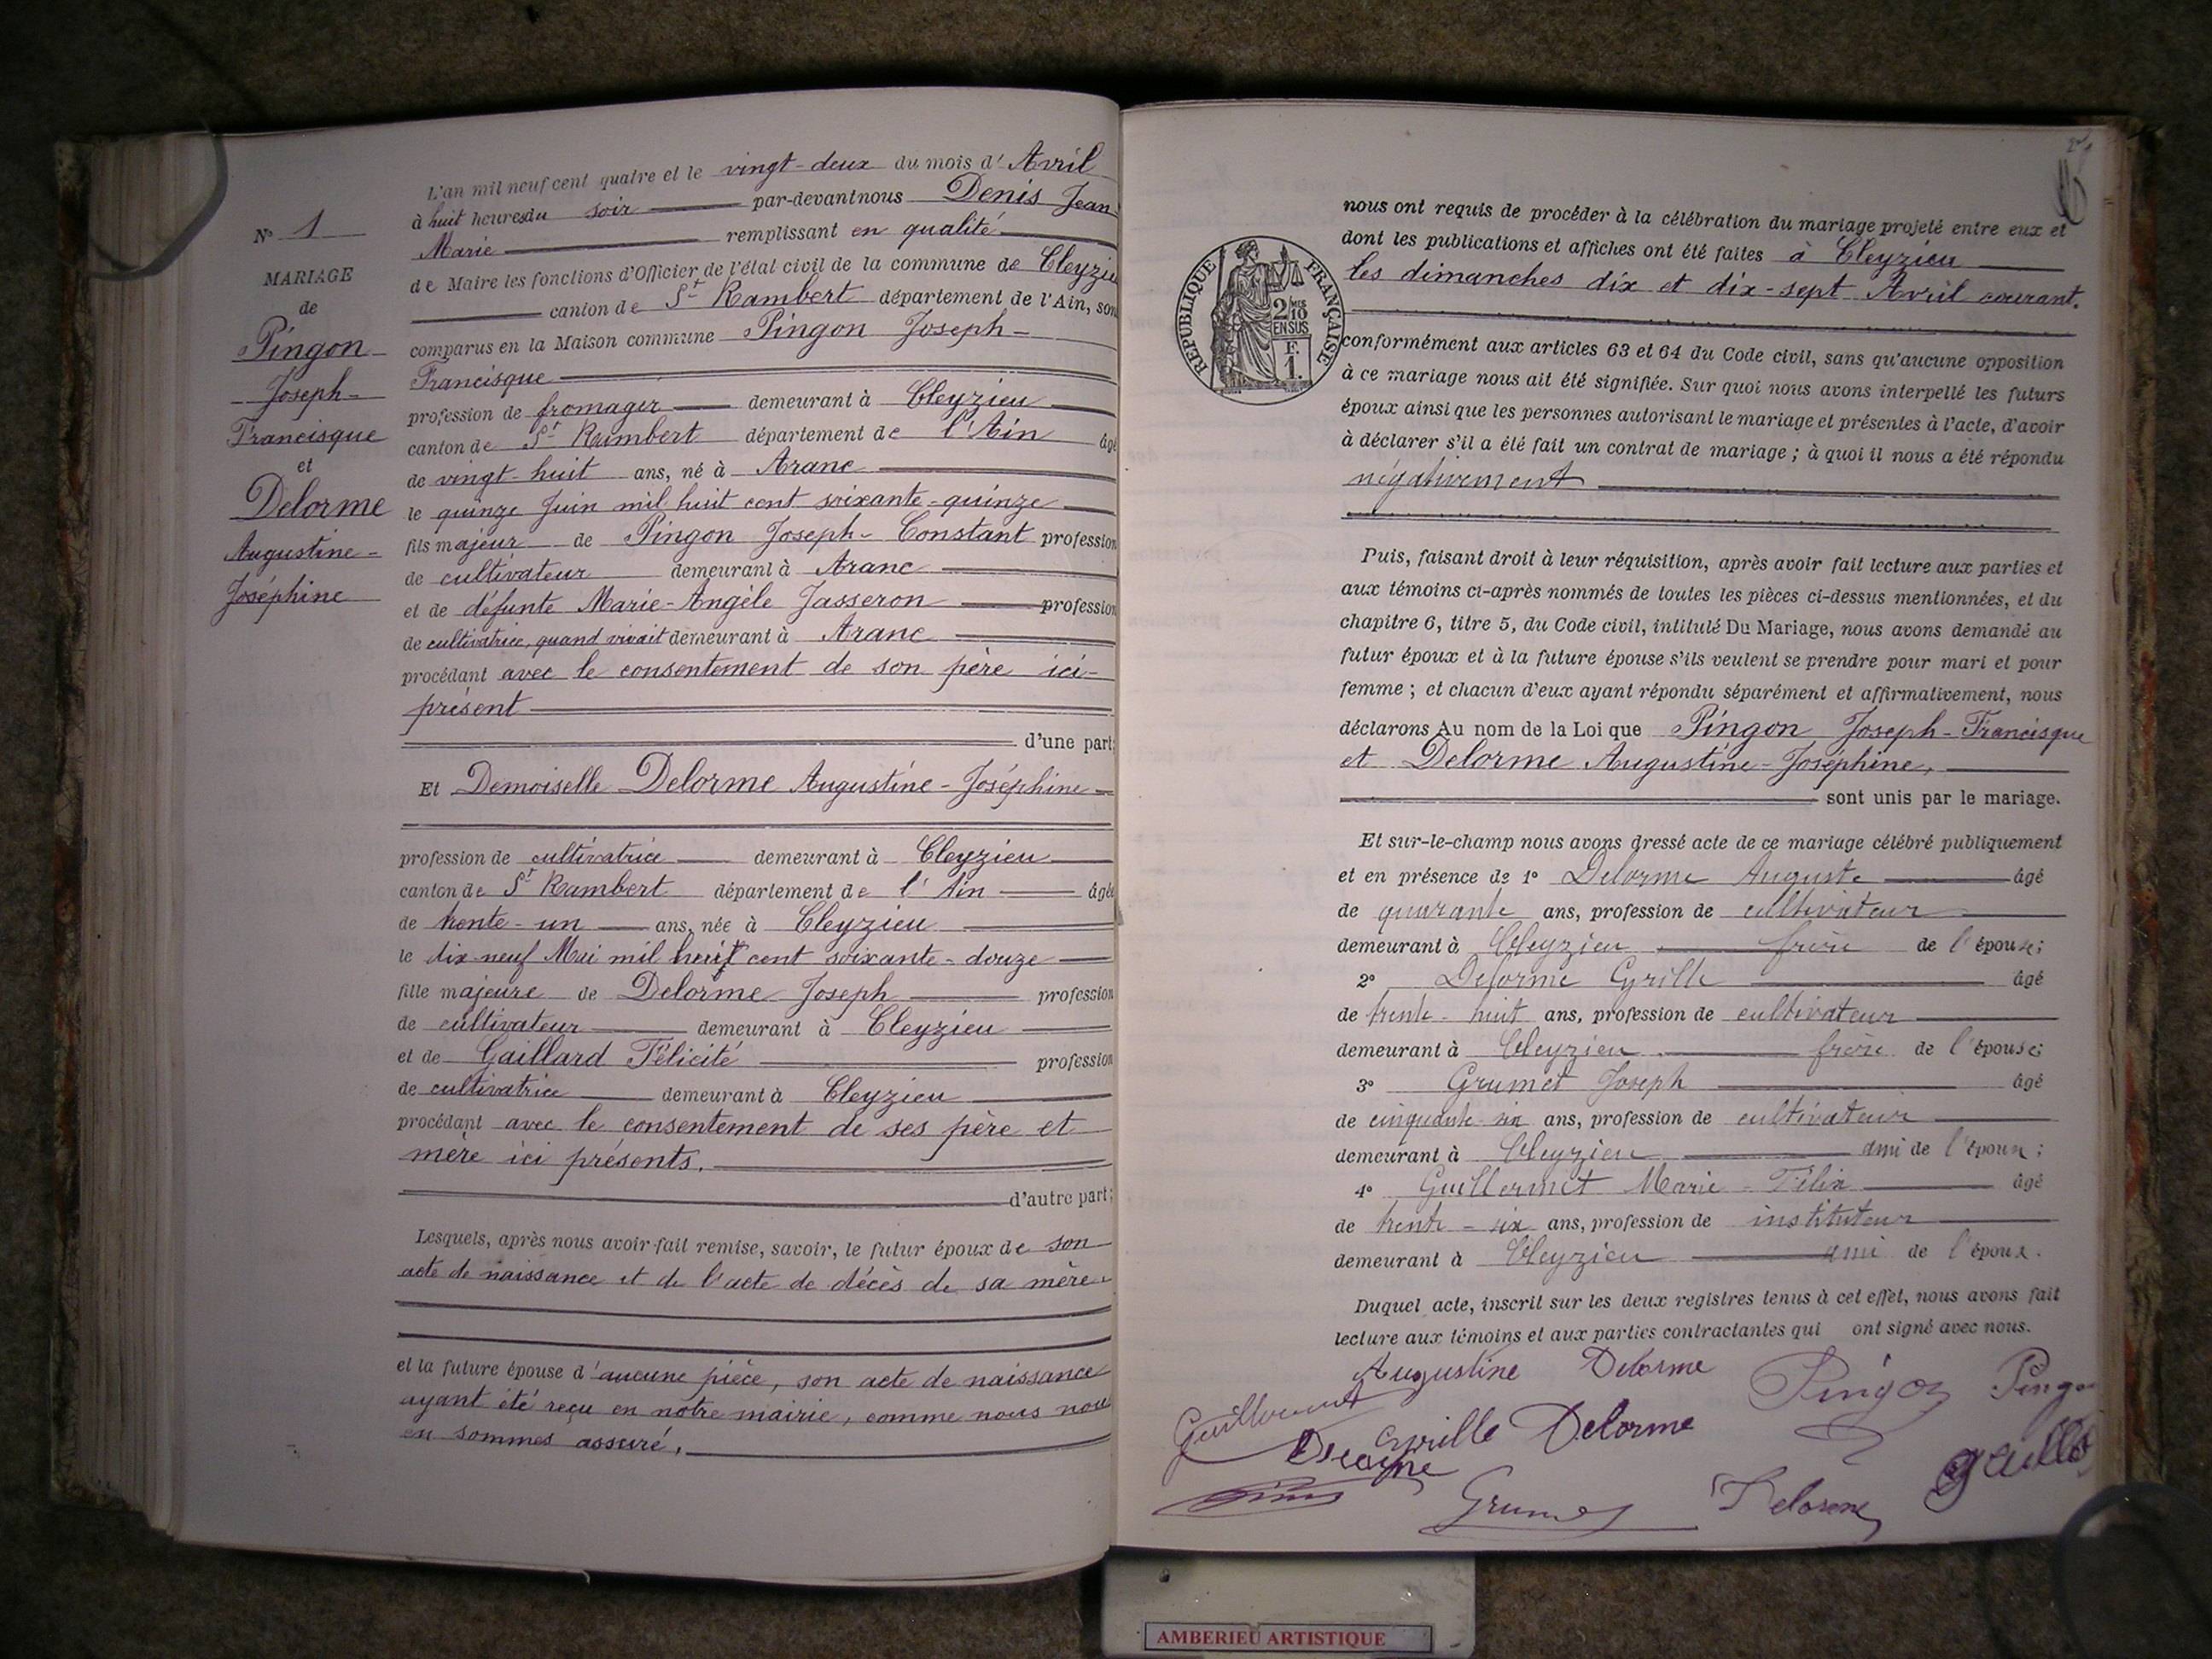 L'an mil neuf cent quatre et le vingt-deux du mois d'Avril
à huit heures du soir par-devant nous Denis Jean
Marie remplissant en qualité
de Maire les fonctions d'Officier de l'état civil de la commune de Cleyzieu
canton de St Rambert département de l'Ain, sont
comparus en la Maison commune Pingon Joseph-
Francisque
profession de fromager demeurant à Cleyzieu
canton de St Rambert département de l'Ain âgé
de vingt-huit ans, né à Aranc
le quinze Juin mil huit cent soixante-quinze
fils majeur de Pingon Joseph-Constant profession
de cultivateur demeurant à Aranc
et de défunte Marie-Angèle Jasseron profession
de cultivatrice, quand vivait demeurant à Aranc
procédant avec le consentement de son père ici-
présent
d'une part;
Et Demoiselle Delorme Augustine-Joséphine
profession de cultivatrice demeurant à Cleyzieu
canton de St Rambert département de l'Ain âgée
de trente-un ans, née à Cleyzieu
le dix-neuf Mai mil huit cent soixante-douze
fille majeure de Delorme Joseph profession
de cultivateur demeurant à Cleyzieu
et de Gaillard Félicité profession
de cultivatrice demeurant à Cleyzieu
procédant avec le consentement de ses père et
mère ici présents.
d'autre part;
Lesquels, après nous avoir fait remise, savoir, le futur époux de son
acte de naissance et de l'acte de décès de sa mère.
et la future épouse d'aucune pièce, son acte de naissance
ayant été reçu en notre mairie, comme nous nous
en sommes assuré.
No 1
MARIAGE
de
Pingon
Joseph-
Francisque
et
Delorme
Augustine-
Joséphine
nous ont requis de procéder à la célébration du mariage projeté entre eux et
dont les publications et affiches ont été faites à Cleyzieu
les dimanches dix et dix-sept Avril courant.
RÉPUBLIQUE FRANÇAISE
2/10
MES
EN SUS
F.
1.
conformément aux articles 63 et 64 du Code civil, sans qu'aucune opposition
à ce mariage nous ait été signifiée. Sur quoi nous avons interpellé les futurs
époux ainsi que les personnes autorisant le mariage et présentes à l'acte, d'avoir
à déclarer s'il a été fait un contrat de mariage ; à quoi il nous a été répondu
négativement
Puis, faisant droit à leur réquisition, après avoir fait lecture aux parties et
aux témoins ci-après nommés de toutes les pièces ci-dessus mentionnées, et du
chapitre 6, titre 5, du Code civil, intitulé Du Mariage, nous avons demandé au
futur époux et à la future épouse s'ils veulent se prendre pour mari et pour
femme ; et chacun d'eux ayant répondu séparément et affirmativement, nous
déclarons Au nom de la Loi que Pingon Joseph-Francisque
et Delorme Augustine-Joséphine,
sont unis par le mariage.
Et sur-le-champ nous avons dressé acte de ce mariage célébré publiquement
et en présence de 1° Delorme Auguste âgé
de quarante ans, profession de cultivateur
demeurant à Cleyzieu frère de l'épouse;
2° Delorme Cyrille âgé
de trente-huit ans, profession de cultivateur
demeurant à Cleyzieu frère de l'épouse;
3° Grumet Joseph âgé
de cinquante-six ans, profession de cultivateur
demeurant à Cleyzieu ami de l'époux;
4° Guillermet Marie-Félix âgé
de trente-six ans, profession de instituteur
demeurant à Cleyzieu ami de l'époux.
Duquel acte, inscrit sur les deux registres tenus à cet effet, nous avons fait
lecture aux témoins et aux parties contractantes qui ont signé avec nous.
Augustine Delorme Pingon Pingon
Guillermet Cyrille Delorme
Delorme
Grumet Delorme
AMBERIEU ARTISTIQUE